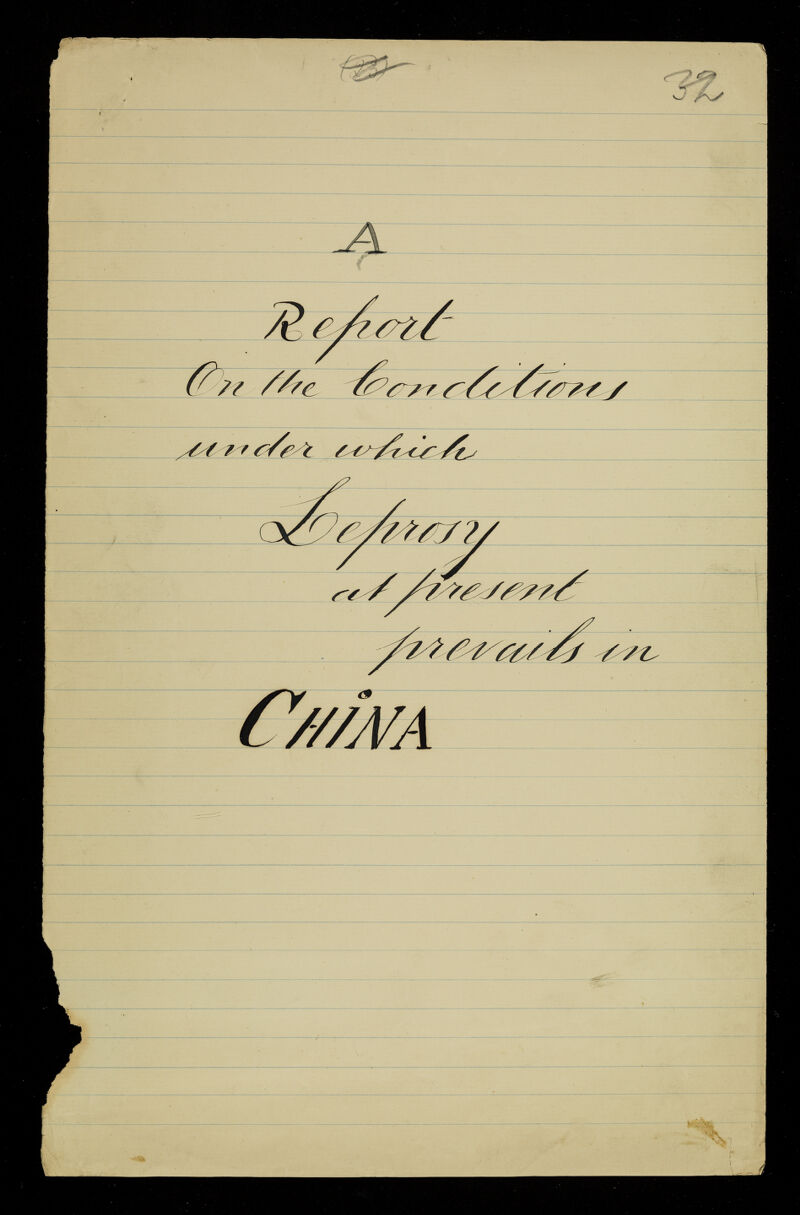 32
A
Report
On the Conditions
under which
Leprosy
at present
prevails in
CHiNA